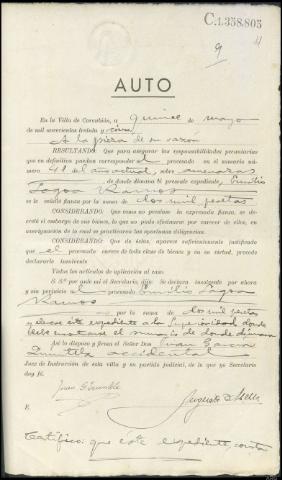 C.1.358.803
9
AUTO
En la Villa de Corcubión, a quince de mayo
de mil novecientos treinta y cinco
A la pieza de su razón
RESULTANDO: Que para asegurar las responsabilidades pecuniarias
que en definitiva puedan corresponder al procesado en el sumario
núm. 41 del año actual, sobre amenazas
de donde dimana el presente expediente, Emilio
Lagoa Ramos
se le señaló fianza por la suma de dos mil pesetas
CONSIDERANDO: Que como no prestase la expresada fianza, se de-
cretó el embargo de sus bienes, lo que no pudo efectuarse por carecer de ellos, en
averiguación de lo cual se practicaron las oportunas diligencias.
CONSIDERANDO: Que de éstas, aparece suficientemente justificado
que el procesado carece de toda clase de bienes y en su virtud, procede
declararle insolvente
Vistos los artículos de aplicación al caso.
S. Sª por ante mí el Secretario, dijo: Se declara insolvente por ahora y
sin perjuicio al procesado Emilio Lagoa
Ramos
por la suma de dos mil pesetas
y elévese éste expediente a la Superioridad donde
debe constar el sumario de donde dimana
Así lo dispuso y firma el Señor Don Juan García
Quintela accidental
Juez de Instrucción de esta villa y su partido judicial, de lo que yo Secretario
doy fé.
E.
Certifico: que éste expediente, consta